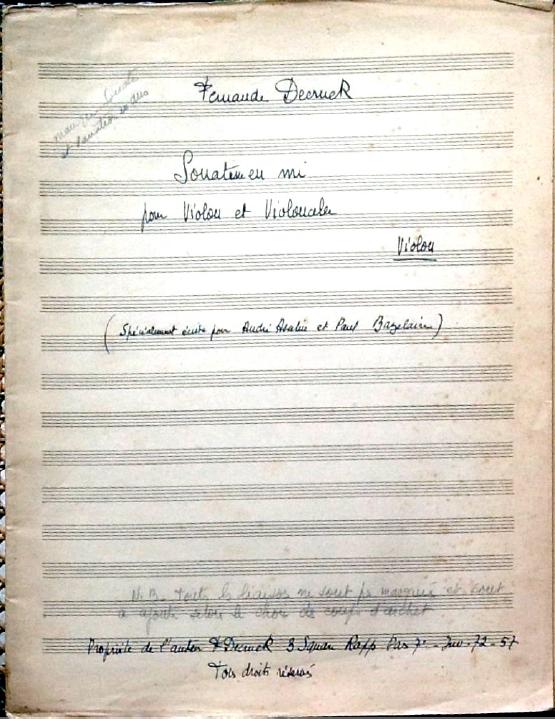 Fernande Decruck
Sonatine en mi
pour Violon et Violoncelle
Violon
(Spécialement écrite pour André Asselin et Paul Bazelaire)
N.B. Toutes les liaisons ne sont pas marquées et sont
à ajouter selon le choix de coups d'archet
Propriété de l'auteur F Decruck 3 Square Rapp Paris 7e - Inv-72-57
Tous droits réservés